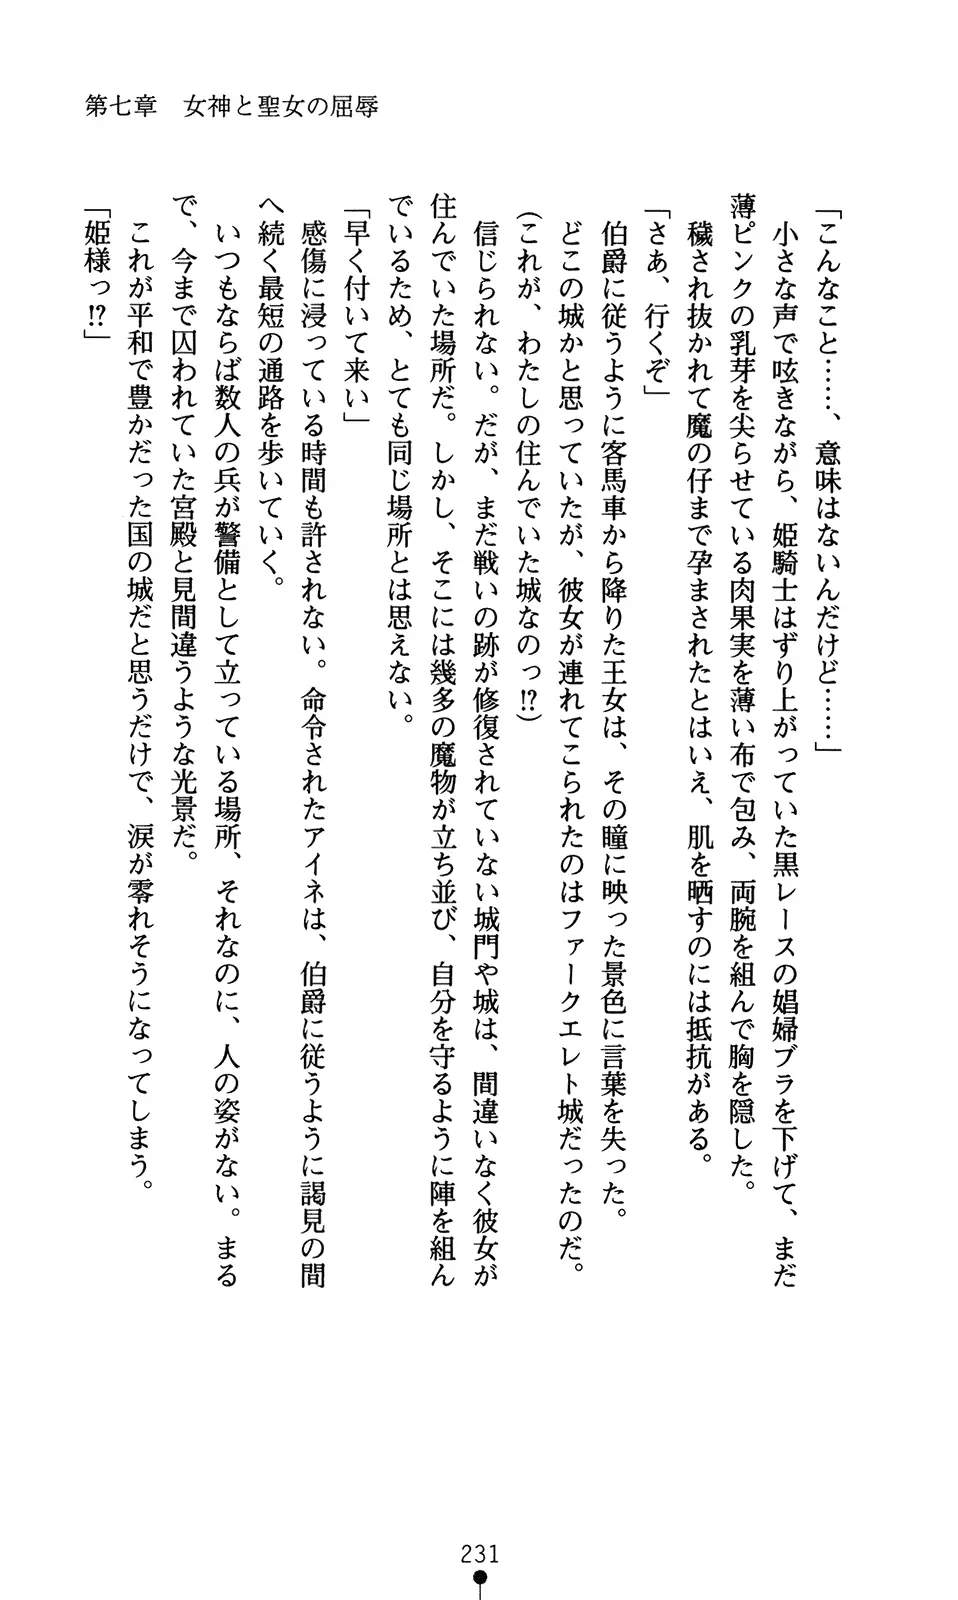 第七章　女神と聖女の屈辱
「こんなこと……、意味はないんだけど……」
　小さな声で呟きながら、姫騎士はずり上がっていた黒レースの娼婦ブラを下げて、まだ
薄ピンクの乳芽を尖らせている肉果実を薄い布で包み、両腕を組んで胸を隠した。
　穢され抜かれて魔の仔まで孕まされたとはいえ、肌を晒すのには抵抗がある。
「さあ、行くぞ」
　伯爵に従うように客馬車から降りた王女は、その瞳に映った景色に言葉を失った。
　どこの城かと思っていたが、彼女が連れてこられたのはファークエレト城だったのだ。
（これが、わたしの住んでいた城なのっ!?）
　信じられない。だが、まだ戦いの跡が修復されていない城門や城は、間違いなく彼女が
住んでいた場所だ。しかし、そこには幾多の魔物が立ち並び、自分を守るように陣を組ん
でいるため、とても同じ場所とは思えない。
「早く付いて来い」
　感傷に浸っている時間も許されない。命令されたアイネは、伯爵に従うように謁見の間
へ続く最短の通路を歩いていく。
　いつもならば数人の兵が警備として立っている場所、それなのに、人の姿がない。まる
で、今まで囚われていた宮殿と見間違うような光景だ。
　これが平和で豊かだった国の城だと思うだけで、涙が零れそうになってしまう。
「姫様っ!?」
231